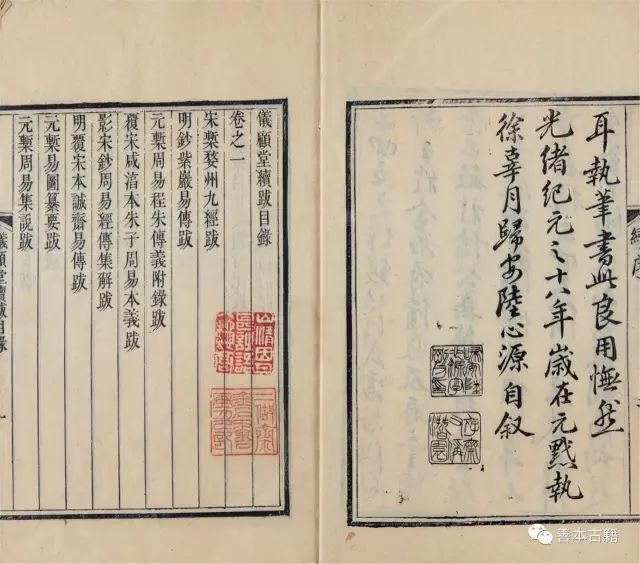 耳執筆書此良用憮然
光緒紀元之十八年歲在元黓執
徐辜月歸安陸心源自叙
儀顧堂續跋目錄
卷之一
宋槧婺州九經跋
明鈔紫巖易傳跋
元槧周易程朱傳義附錄跋
覆宋咸淳本朱子周易本義跋
影宋鈔周易經傳集解跋
明覆宋本誠齋易傳跋
元槧易圖纂要跋
元槧周易集說跋
儀顧堂續跋目錄
善本古籍